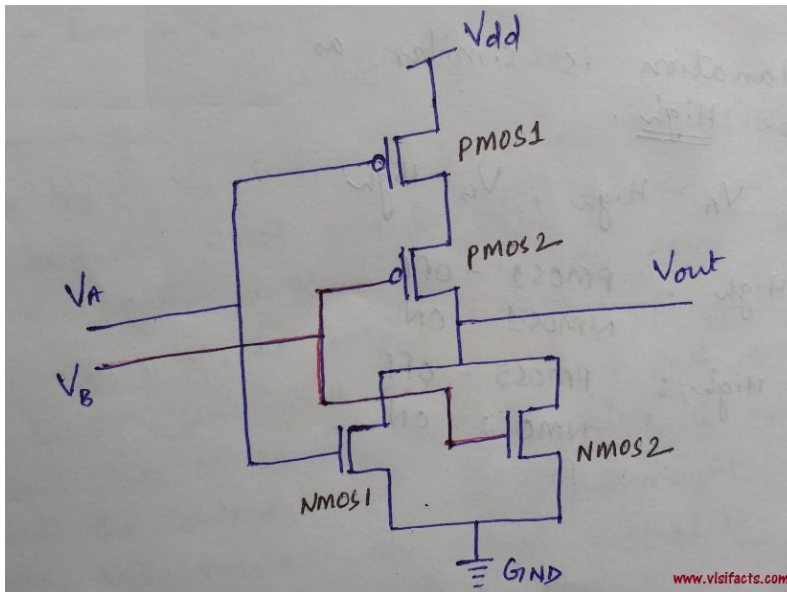 Vdd
PMOS1
PMOS2
Vout
VA
VB
NMOS1
NMOS2
GND
www.vlsifacts.com